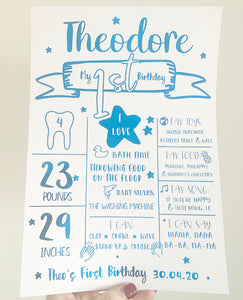 Theodore
My 1st Birthday
4
I
LOVE
BATH TIME
THROWING FOOD
ON THE FLOOR
BABY SHARK
THE WASHING MACHINE
FAV TOYS
MUSIC MACHINE,
ACTIVITY TABLE & BALL
FAV FOOD
& MUMMY'S OMELETTES
FAV SONG
IF YOU'RE HAPPY &
YOU KNOW IT
23
POUNDS
29
INCHES
I CAN
CLAP ★ CRAWL ★ WAVE
STAND UP & CRUISE
I CAN SAY
MAMA, DADA
BA-BA, NA-NA
Theo's First Birthday 30.04.20